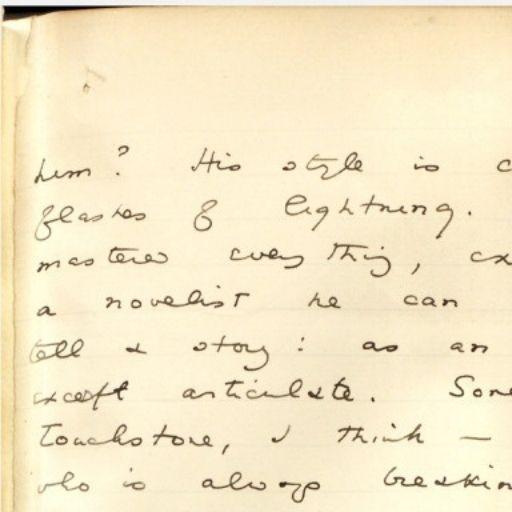 him? His style is c
flashes of lightning.
mastered everything, ex
a novelist he can
tell a story: as an
except articulate. Some
Touchstone, I think —
who is always breakin